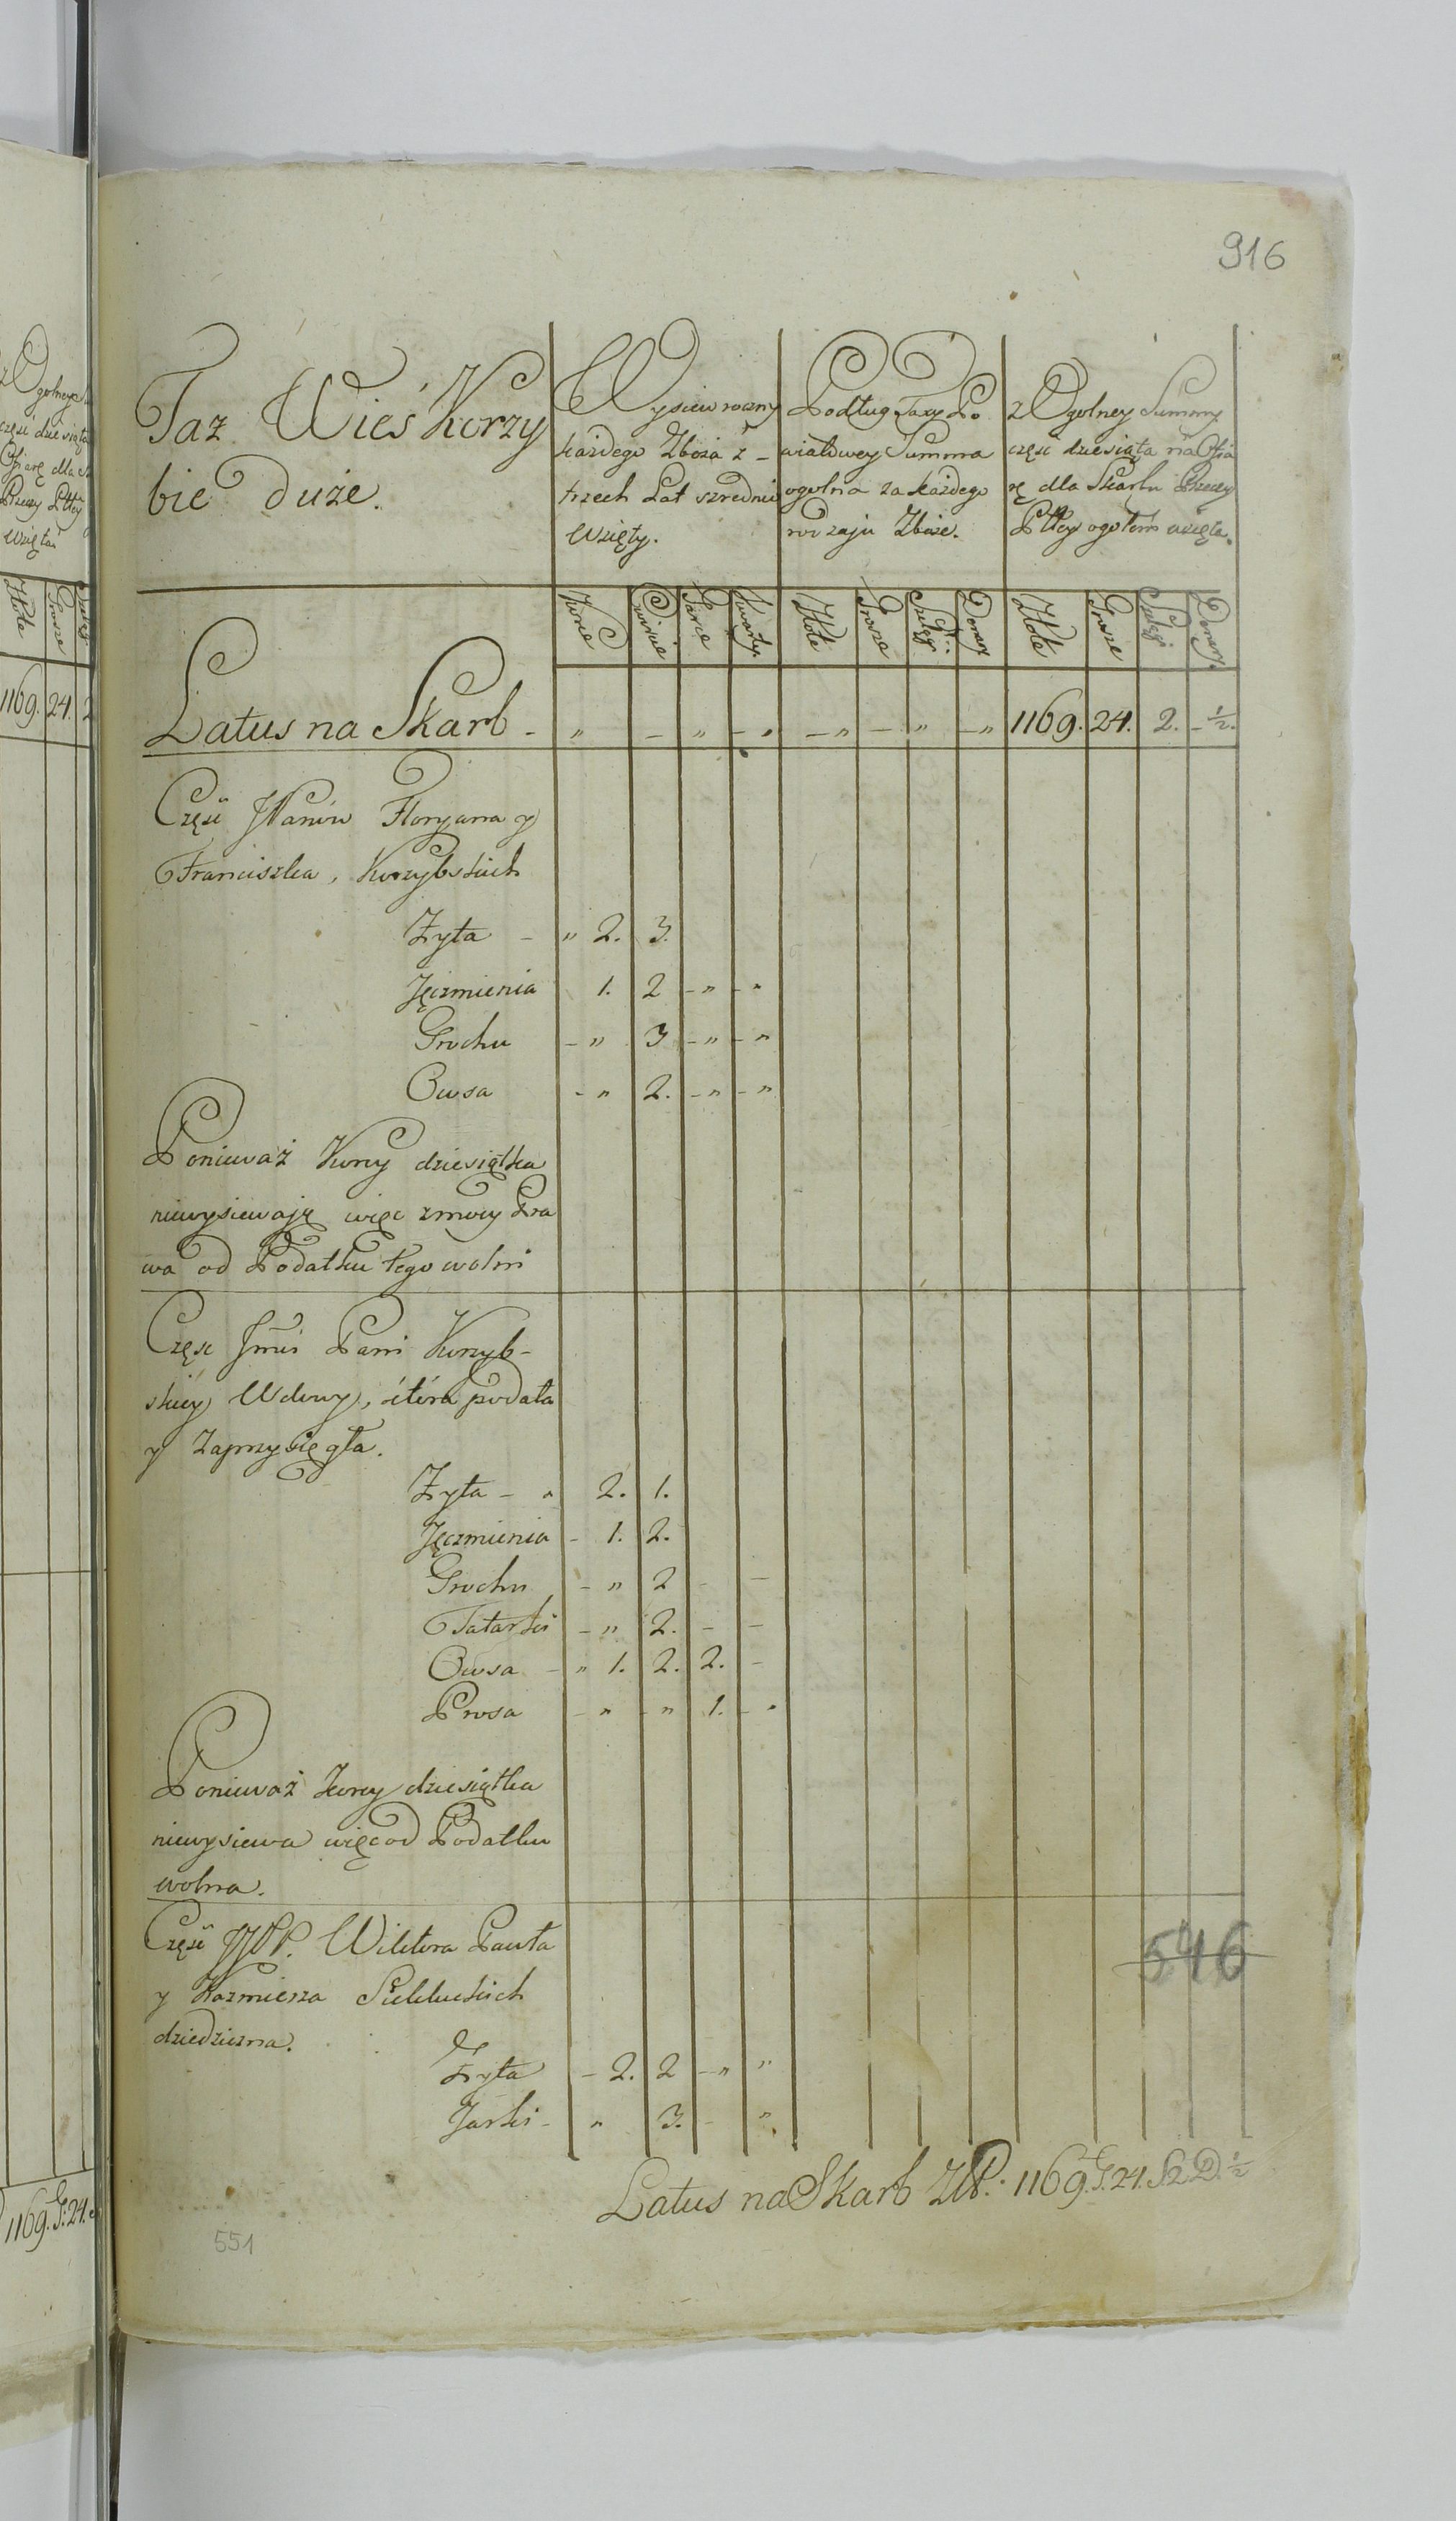 916
Taz Wieś Korzy
bie duże.
Wysiew roczny
każdego Zboża z -
trzech Lat szrednio
Wzięty.
Podług Taxy Po
wiatowey Summa
ogolna za każdego
rodzaju Zboże.
z Ogolney Summy
częsc dziesiąta na Ofia
rę dla Skarbu Rzeczy
Pltey ogołem wzięta.
Korce Cwierci Garce Kwarty Złote Grosze Szelągi Denary Złote Grosze Szelągi Denary
Latus na Skarb - „ - „ - „ - „ - „ - „ 1169. 24. 2. - ½.
Częsć JPanów Floryana y
Franciszka, Korzybskich
Zyta - „ 2. 3.
Jęczmienia 1. 2 - „ - „
Grochu - „ 3 - „ - „
Owsa - „ 2. - „ - „
Poniewaz Korcy dziesiątka
niewysiewaję więc zmocy Pra
wa od Podatku tego wolni
Częsc Jmci Pani Korzyb-
skiey Wdowy, która podała
y Zaprzysięgła.
Zyta - „ 2. 1.
Jęczmienia - 1. 2.
Grochu - „ 2 - -
Tatarki - „ 2. - -
Owsa - „ 1. 2. 2. -
Prosa - „ - „ 1. - „
Poniewaz Korcy dziesiątka
niewysiewa więc od Podatku
wolna.
Częsć JJPP. Wiktora Pawła
y Kazmierza
dziedziczna.
546
Zyta - 2. 2 - „ „
Jarki - „ 3. - „
Latus na Skarb ZłP. 1169. G. 24. S2. D. ½
551
Ogolney
częsc dziesiąta
Ofiarę dla
Rzeczy Pltey
Wzięta
Złote Grosze
1169. 24. 2
1169. G: 24.